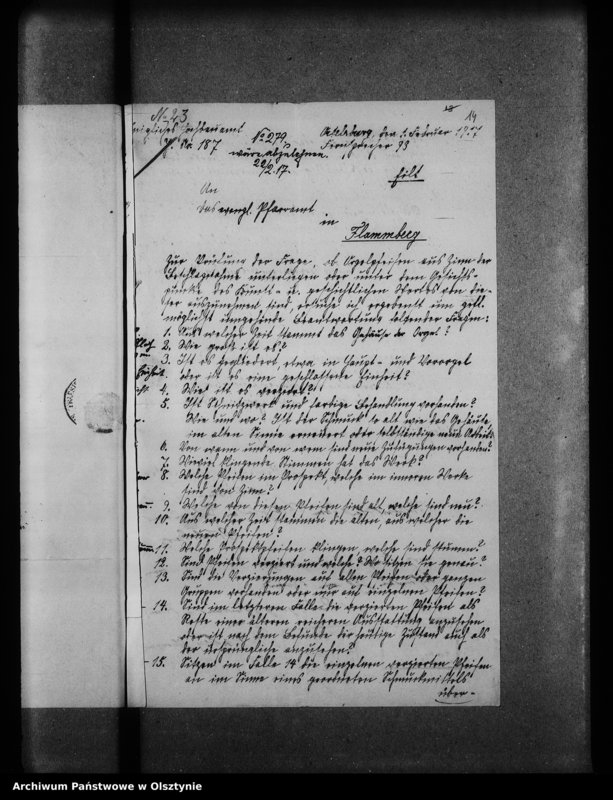 No 23
13
14
königliches Hochbauamt
J. No 187
No 279
wäre abzulehnen.
22/2.17.
Ortelsburg, den 5. Februar 1917
Fernsprecher 93
Eilt
An
das evangl. Pfarramt
in
Flammberg
Zur Prüfung der Frage, ob Orgelpfeifen aus Zinn der
Beschlagnahme unterliegen oder unter dem Gesichts-
punkte des Kunst- u. geschichtlichen Wertes von die-
ser auszunehmen sind, ersuche ich ergebenst um gefl.
möglichst umgehende Beantwortung folgender Fragen:
1. Aus welcher Zeit stammt das Gehäuse der Orgel?
2. Wie groß ist es?
3. Ist es gegliedert, etwa in Haupt- und Vororgel
oder ist es eine geschlossene Einheit?
4. Wie ist es verziert?
5. Ist Schnitzwerk und farbige Behandlung vorhanden?
Wie und wo? Ist der Schmuck so alt wie das Gehäuse
im alten Sinne erneuert oder selbständige neue Arbeit?
6. Von wann und von wem sind neue Zufügungen vorhanden?
7. Wieviel klingende Stimmen hat das Werk?
8. Welche Pfeifen im Prospekt, welche im inneren Werke
sind von Zinn?
9. Welche von diesen Pfeifen sind alt, welche sind neu?
10. Aus welcher Zeit stammen die alten, aus welcher die
neuen Pfeifen?
11. Welche Prospektpfeifen klingen, welche sind stumm?
12. Sind Pfeifen verziert und welche? Wo sitzen sie genau?
13. Sind die Verzierungen auf allen Pfeifen oder ganzen
Gruppen vorhanden oder nur auf einzelnen Pfeifen?
14. Sind im letzteren Falle die verzierten Pfeifen als
Reste einer älteren reicheren Ausstattung anzusehen
oder ist nach dem Befunde der heutige Zustand auch als
der ursprüngliche anzusehen?
15. Sitzen im Falle 14 die einzelnen verzierten Pfeifen
an im Sinne eines geordneten Schmuckmittels
über-
Archiwum Państwowe w Olsztynie